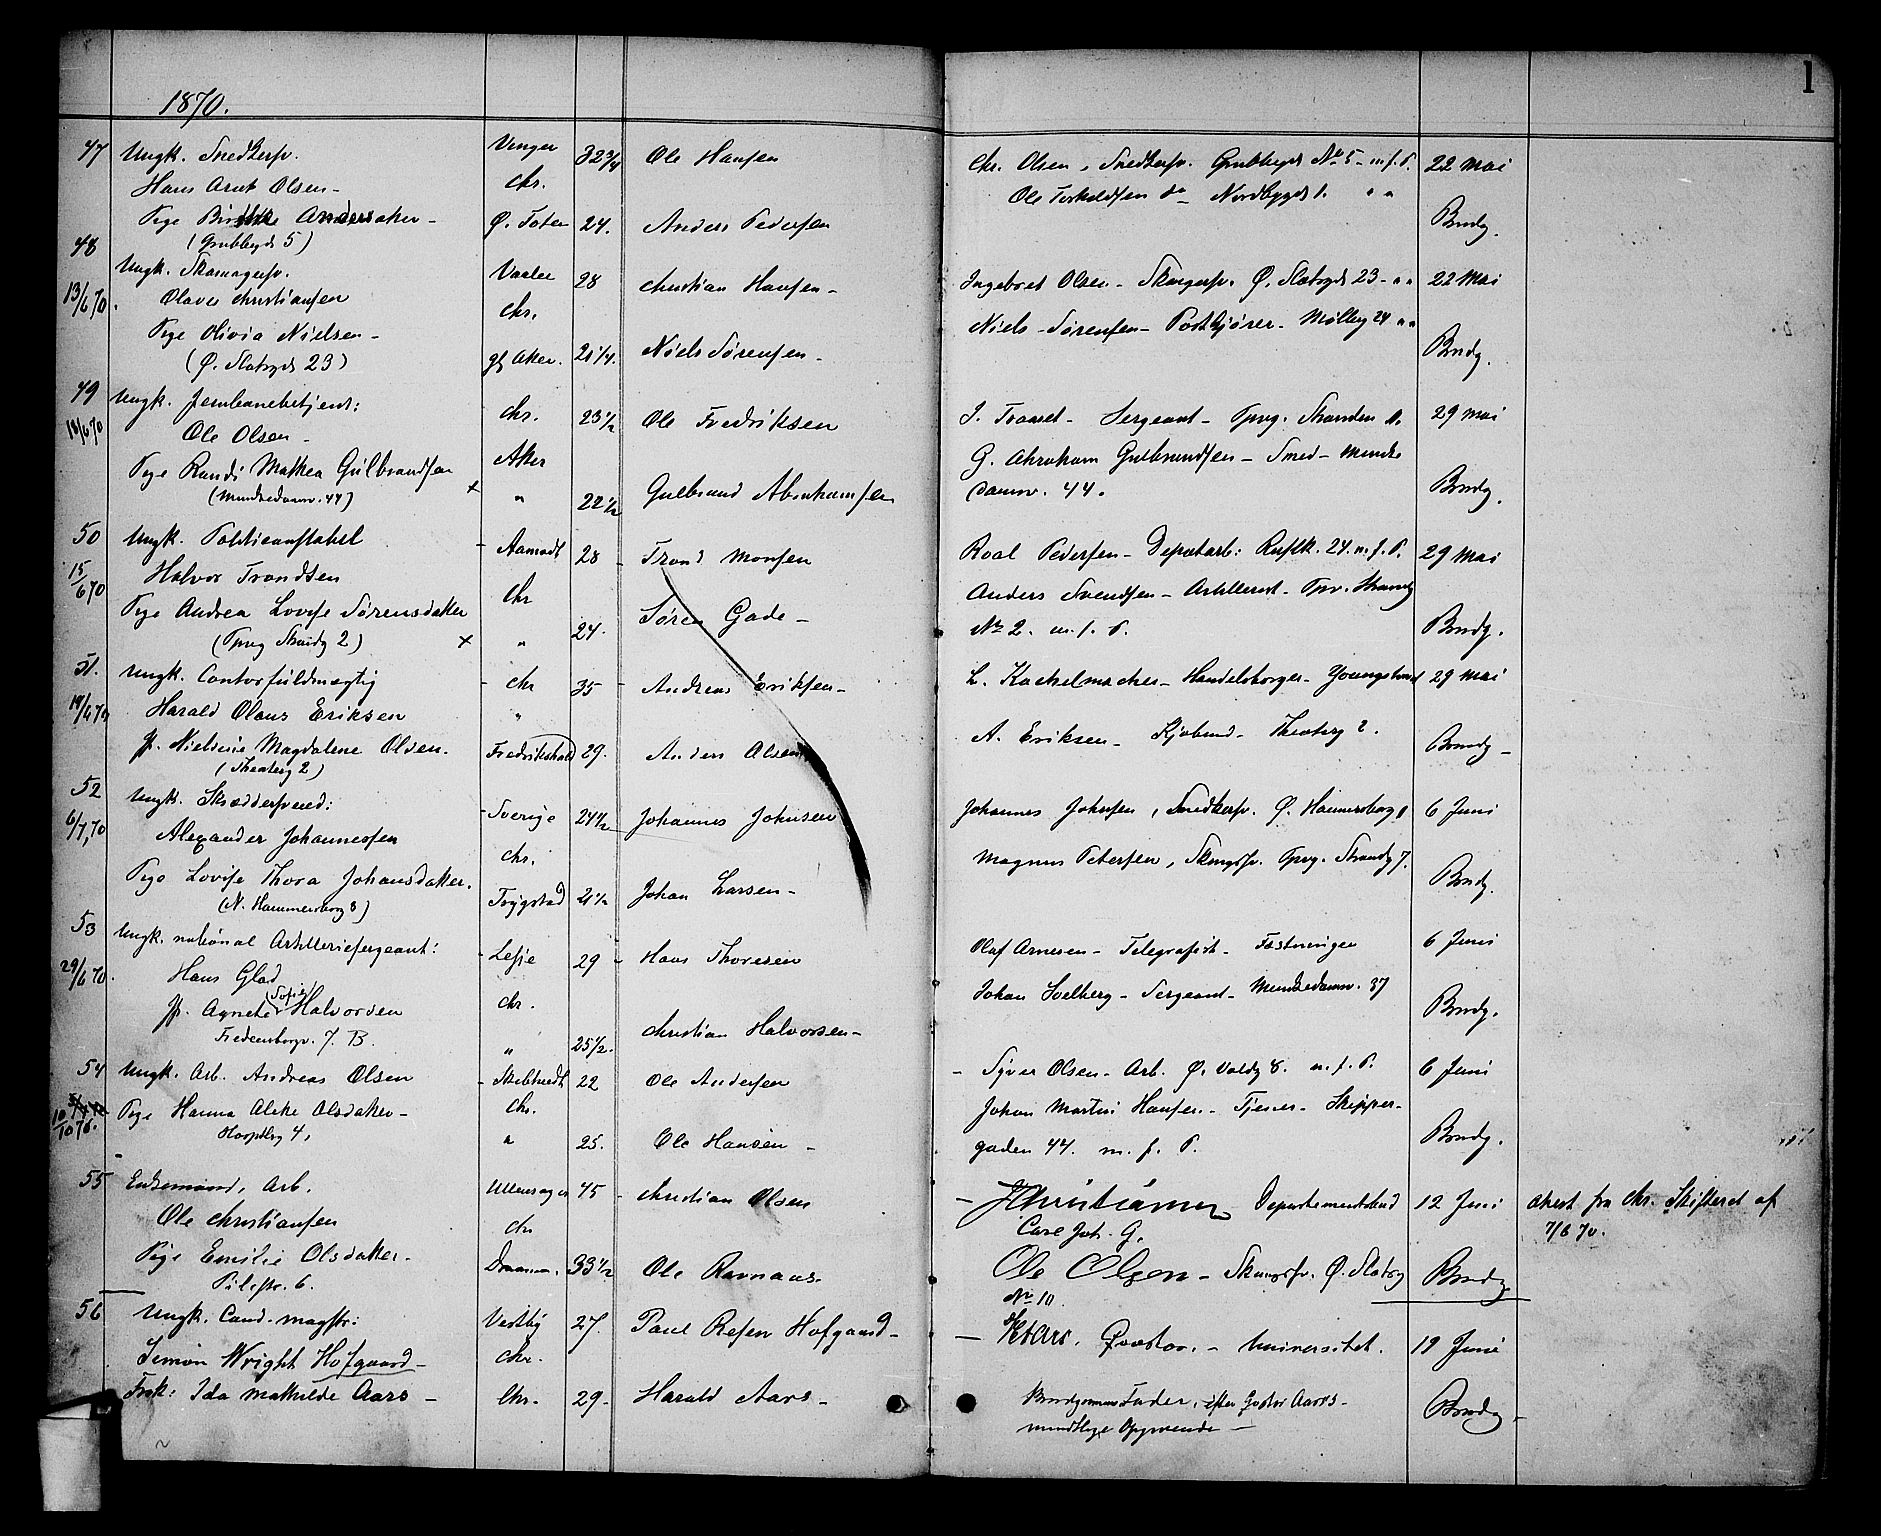 1
1870.
47 Ungk. Snedkersv. Vinger 32 3/4 Ole Hansen Chr. Olsen, Snedkersv. Grubbegd No 5 - m. f. P. 22 Mai
Hans Arnt Olsen - Chr. Ole Torkeldsen do Nordbygd 1. " "
Pige Andersdaker - Ø. Toten 24. Anders Pedersen Brudg.
(Grubbegd 5)
48 Ungk. Skomagersv. Vaaler 28 Christian Hansen - Ingebret Olsen - Skomgersv. Ø. Slotsgd 23 - " " 22 Mai
13/6 70. Olaves Christiansen Chr. Niels Sørensen - Postkjører - Mølleg 24 " "
Pige Olivia Nielsen - gl Aker. 21 1/4. Niels Sørensen - Brudg.
(Ø. Slotsgd 23)
49 Ungk. Jernbanebetjent: Chr. 23 1/2 Ole Fredriksen Sergeant - Tpvg. Stranden 29 Mai
18/6 70 Ole Olsen - Aker G. Abraham Gulbrandsen - Smed - Munke
Pige Randi Mathea Gulbrandsen x " 22 1/2 Gulbrand Abrahamsen damv. 44. Brudg.
(Munkedamv. 44)
50 Ungk. Politieonstabel - Aamodt 28 - Trond Monsen Roal Pedersen - Depotarb: Ruslk. 24. m. f. P. 29 Mai
15/6 70 Halvor Trondsen Chr Anders Svendsen - Artillerist - Tpv. Strandg
Pige Andrea Lovise Sørensdaker " 24. Søren Gade - No 2. m. f. P. Brudg.
(Tpvg Strandg 2) x
51. Ungk. Contorfuldmegtig - Chr 35 - Andreas Eriksen - L. Kackelmacher - Handelsborger - Youngstorvet 29 Mai
Harald Olaus Eriksen "
Jf. Nielsine Magdalene Olsen. Fredrikshald 29. Anders Olsen A. Eriksen - Kjøbmd - Theaterg 2. Brudg -
(Theaterg 2)
52 Ungk. Skrædersvend: - Sverige 24 1/2 Johannes Johnsen Johannes Johnsen, Snedkersv. Ø. Hammersborg 8 6 Juni
6/7, 70 Alexander Johannessen Chr. Magnus Petersen, Skomgsv. Tpvg. Strandg 7.
Pige Lovise Thora Johansdaker. Trygstad 21 1/2 Johan Larsen - Brudg.
(N. Hammersborg 8)
53 Ungk. national Artillerisergeant: - Lesje 29 - Hans Thoresen Olaf Arnesen - Telegrafist - Fæstningen 6 Juni
29/6 70. Hans Glad Chr. Johan Solberg - Sergeant - Munkedamv. 37
Jf. Agnete (Sofie) Halvorsen " 25 1/2. Christian Halvorsen - Brudg.
Fredensborgv. 7. B.
54 Ungk. Arb. Andreas Olsen - Skibtvedt 22 Ole Andersen - Syver Olsen - Arb. Ø. Voldg 8. m. f. P. 6 Juni
10/10 70. Pige Hanna Alette Olsdaker - Chr. Johan Martin Hansen - Tjener - Skipper-
Hospitlsg 4, " 25. Ole Hansen - gaden 44. m. f. P. Brudg.
55 Enkemand, Arb. Ullensager 45 - Christian Olsen - JChristiansen Departementsbud 12 Juni Attest fra Chr. Skifteret af
Ole Christiansen Chr Carl Joh. G. 7/6 70.
Pige Emilie Olsdaker - Drammen. 33 1/2 Ole Ravnaas. Ole Olsen - Skomgsv. Ø. Slotsg Brudg
Pilestr. 6. No 10.
56 Ungk. Cand. magstr: Vestby 27. Paul Resen Hofgaard - - Aars. Qvæstor. - Universitet. 19 Juni
Simon Wright Hofgaard - Chr.
Frøk: Ida Mathilde Aars - Chr. 29 - Harald Aars - Brudgommens Fader, efter Pastor Aars's Brudg -
mundtlige Opgivende -